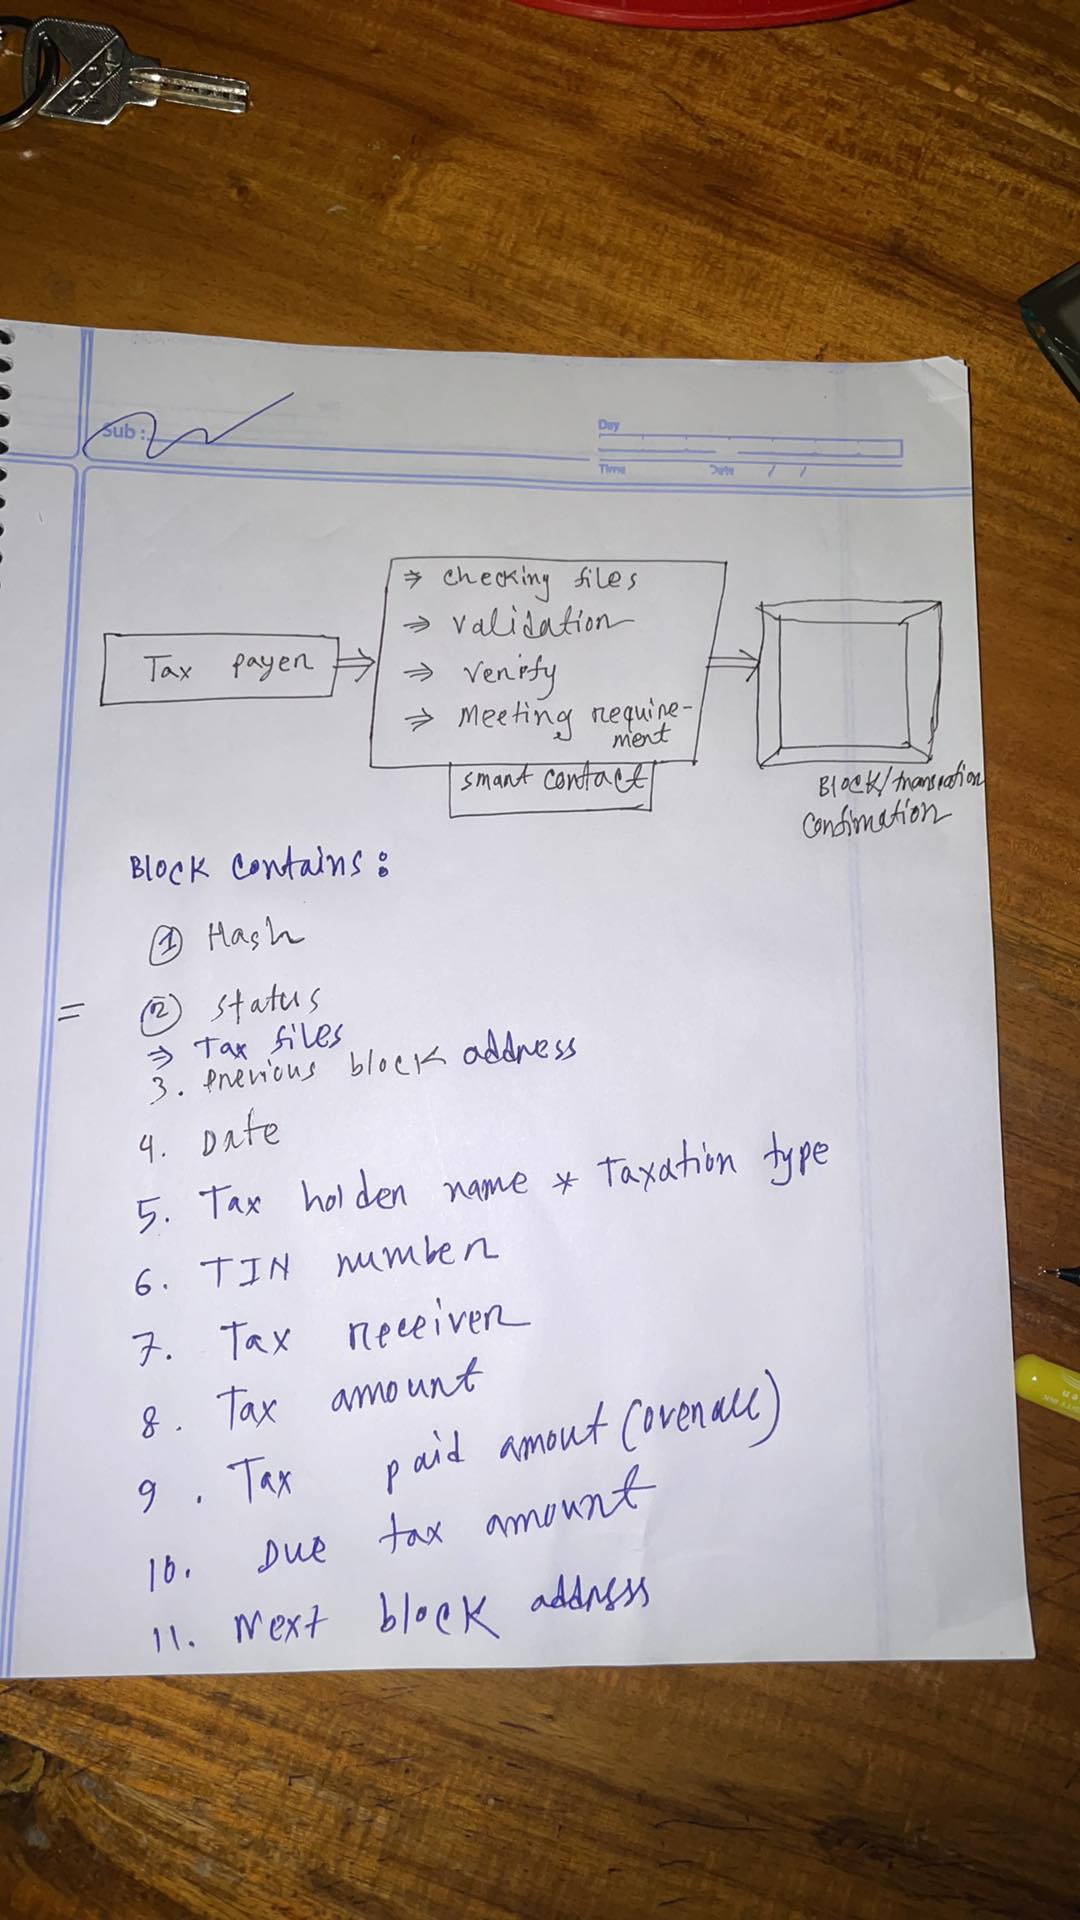 Sub :
Day
Time Date / /
⇒ checking files
⇒ validation
⇒ verify
⇒ Meeting require-
ment
Tax payer
smart contact
Block/
Confimation
Block contains :
① Hash
= ② status
⇒ Tax files
3. previous block address
4. Date
5. Tax holder name * Taxation type
6. TIN number
7. Tax receiver
8. Tax amount
9. Tax paid amout (overall)
10. Due tax amount
11. Next block address